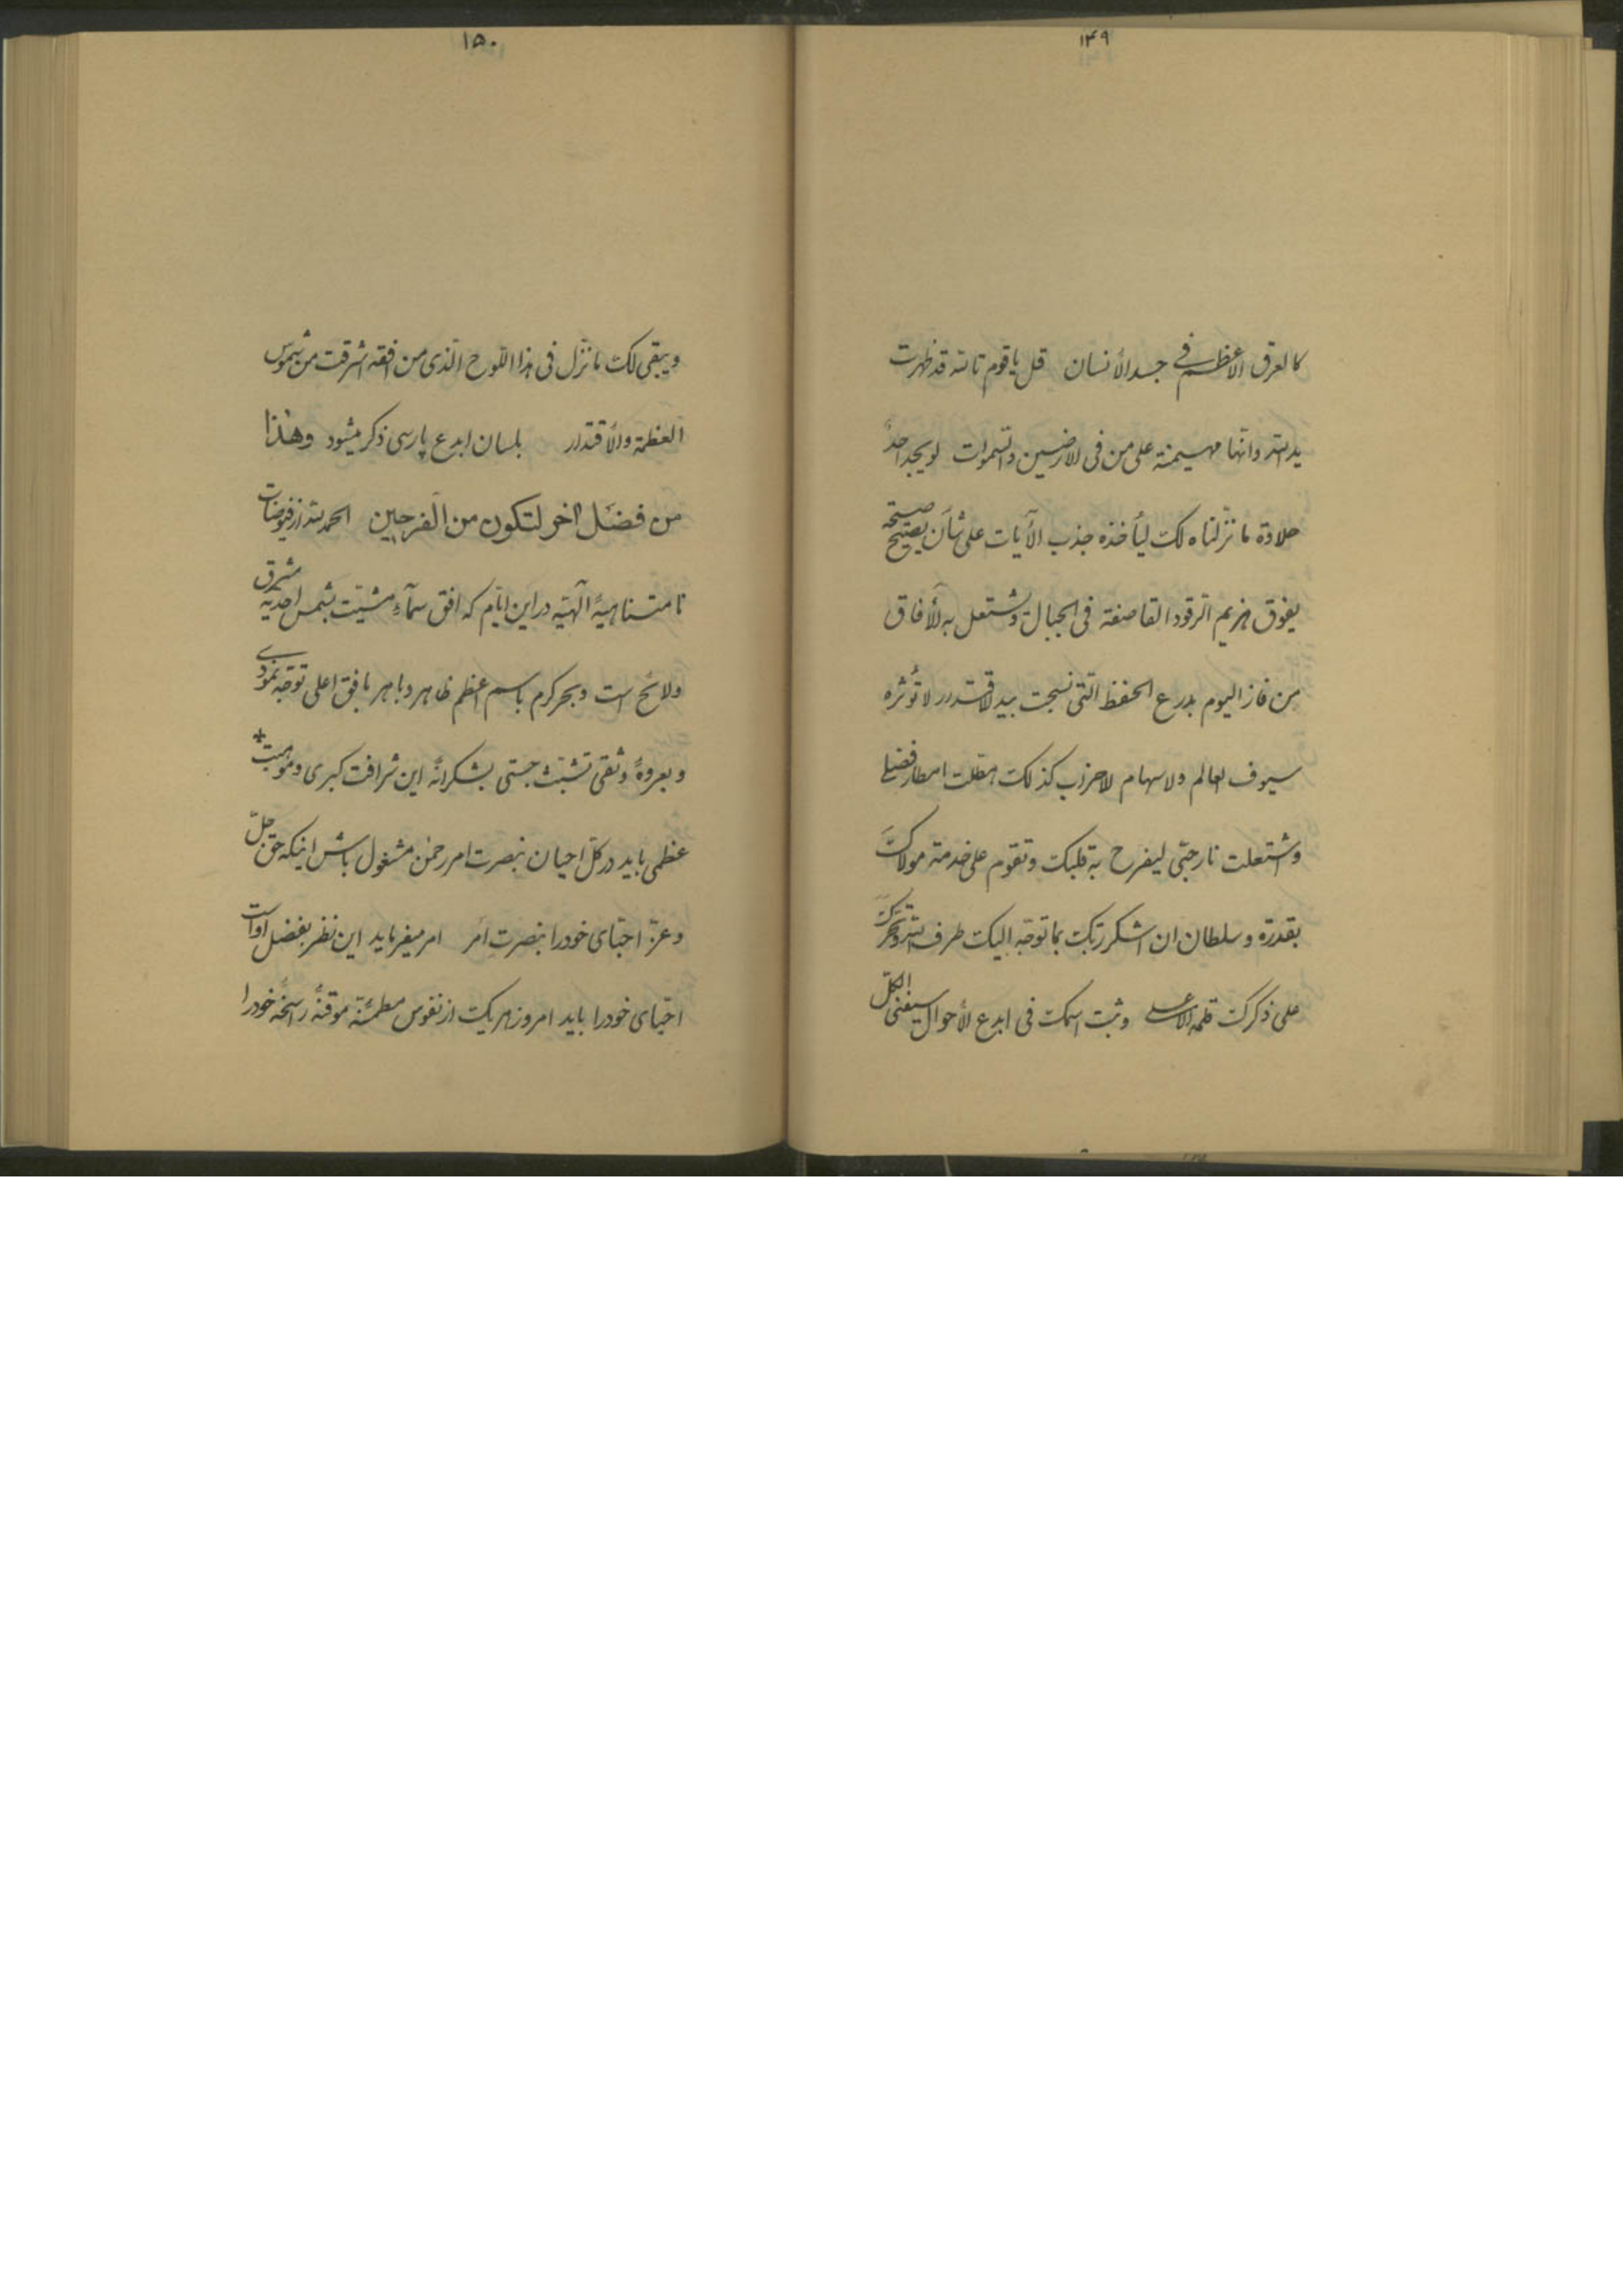 ۱۴۹
كالعرق الأعظم فی جسد الأنسان قل یا قوم تالله قد ظهرت
ید الله و انّها مهیمنة علی من فی الارضین و السّموات لو یجد احدٌ
حلاوة ما نزّلناه لک لیأخذه جذب الآیات علی شأن یصیح صیحة
یفوق هزیم القاصفة فی الجبال و یشتعل به الأفاق
من فاز الیوم بدرع الحفظ الّتی نسجت بید الاقتدار لا تؤثره
سیوف العالم و لا سهام الاحزاب کذلک هطلت امطار فضلی
و اشتعلت نار حبّی لیفرح به قلبک و تقوم علی خدمة مولاک
بقدرة و سلطان ان اشکر ربّک بما توجّه الیک طرف الله و تحرّک
علی ذکرک قلمه الاعلی و ثبت اسمک فی ابدع الأحوال سیفنی الکلّ
۱۵۰
و یبقی لک ما نزّل فی هذا اللّوح الّذی من افقه اشرقت من شموس
العظمة و الأقتدار بلسان ابدع پارسی ذکر میشود وهذا
من فضل اخر لتکون من الفرحین الحمد لله از فیوضات
نامتناهیهٔ الهیّه در این ایّام که افق سمآء مشیّت بشمس احدیّه مشرق
و لائح است و بحر کرم باسم اعظم ظاهر و باهر بافق اعلی توجّه نمودی
و بعروهٔ وثقی تشبّث جستی بشکرانهٔ این شرافت کبری و موهبت
عظمی باید در کلّ احیان بنصرت امر رحمن مشغول باش اینکه حقّ جلّ
و عزّ احبّای خود را بنصرت امر امر میفرماید این نظر بفضل او است
احبّای خود را باید امروز هر یک از نفوس مطمئنّه موقنهٔ راسخهٔ خود را